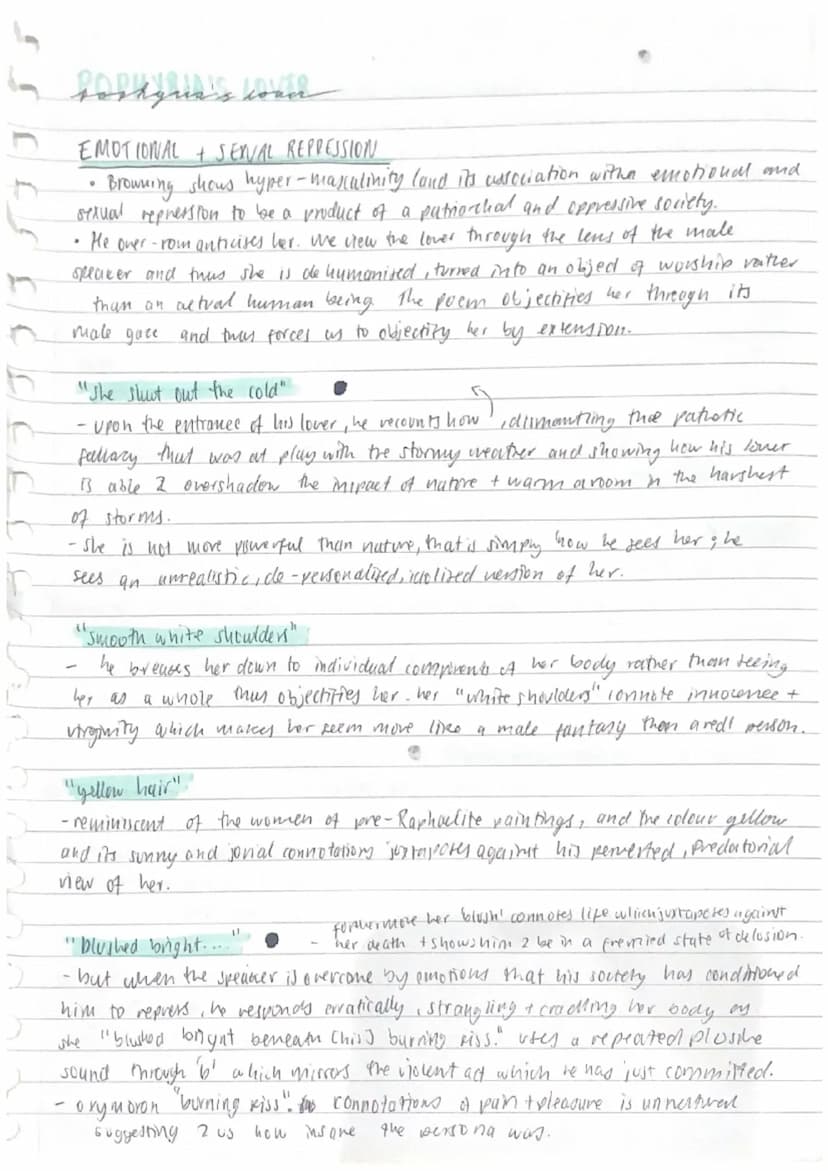 POPHYRIA'S LOVER
porphyria's lover
EMOTIONAL + SEXUAL REPRESSION
• Browning shows hyper-masculinity (and its association with emotional and
sexual repression to be a product of a patriarchal and oppressive society.
• He over-romanticises her. We view the lover through the lens of the male
speaker and thus she is dehumanised, turned into an object of worship rather
than an actual human being. The poem objectifies her through its
male gaze and thus forces us to objectify her by extension.
"she shut out the cold"
- upon the entrance of his lover, he recounts how , dismantling the pathetic
fallacy that was at play with the stormy weather and showing how his lover
is able 2 overshadow the impact of nature + warm a room in the harshest
of storms.
- she is not more powerful than nature, that is simply how he sees her ; he
sees an unrealistic, de-personalised, idolized version of her.
"smooth white shoulders"
- he breaks her down to individual components of her body rather than seeing
her as a whole thus objectifies her. her "white shoulders" connote innocence +
virginity which makes her seem more like a male fantasy than a real person.
"yellow hair"
- reminiscent of the women of pre-Raphaelite paintings, and the colour yellow
and its sunny and jovial connotations juxtaposes against his perverted, predatorial
view of her.
furthermore her 'blush' connotes life which juxtaposes against
"blushed bright..." - her death + shows him 2 be in a frenzied state of delusion.
- but when the speaker is overcome by emotions that his society has conditioned
him to repress, he responds erratically, strangling + cradling her body as
she "blushed bright beneath [his] burning kiss." uses a repeated plosive
sound through 'b' which mirrors the violent act which he has just committed.
- oxymoron "burning kiss". connotations of pain + pleasure is unnatural
suggesting 2 us how insane the persona was.